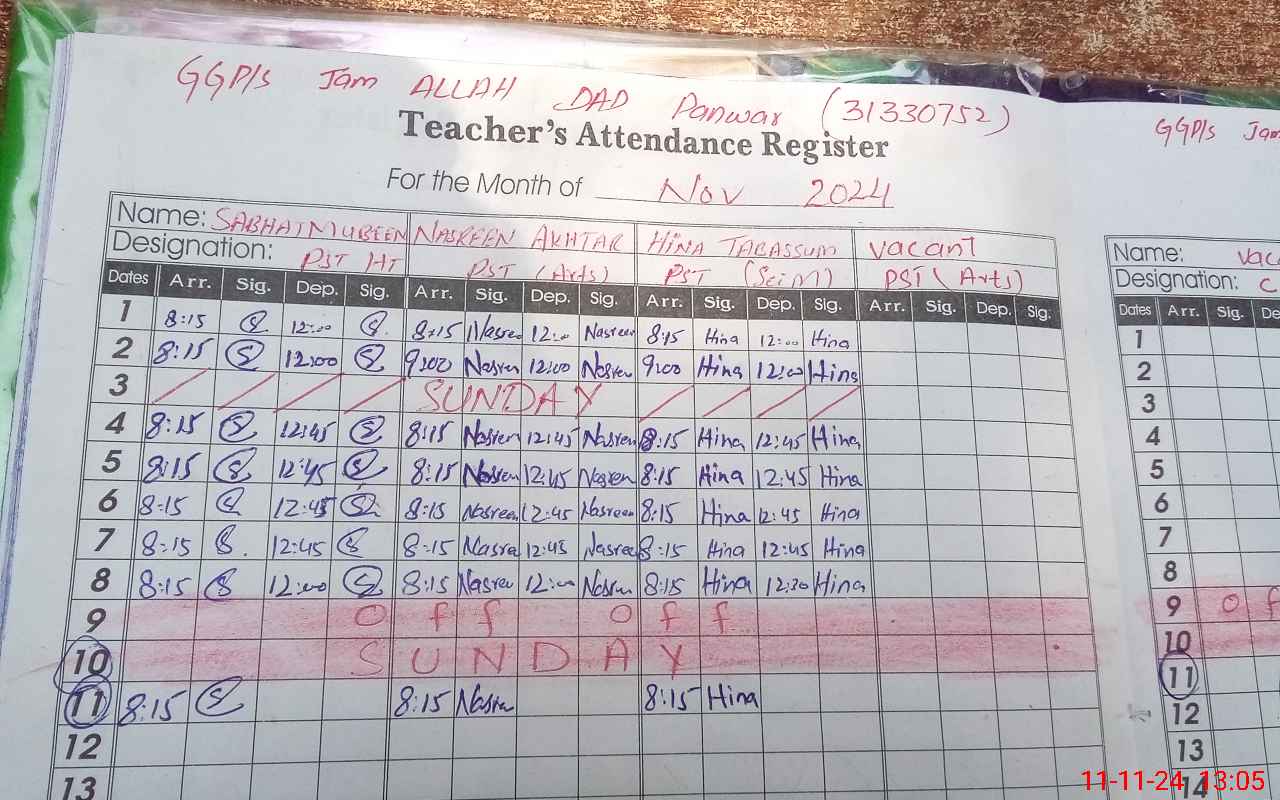 GGP/s Jam ALLAH DAD Panwar (31330752)
Teacher's Attendance Register
For the Month of Nov 2024
Name: SABHAT MUBEEN NASREEN AKHTAR HINA TABASSUM vacant
Designation: PST HT PST (Arts) PST (Sci M) PST (Arts)
Dates Arr. Sig. Dep. Sig. Arr. Sig. Dep. Sig. Arr. Sig. Dep. Sig. Arr. Sig. Dep. Sig.
1 8:15 S 12:00 S 8:15 Nasreen 12:00 Nasreen 8:15 Hina 12:00 Hina
2 8:15 S 12:00 S 9:00 Nasren 12:00 Nasren 9:00 Hina 12:00 Hina
3 SUNDAY
4 8:15 S 12:45 S 8:15 Nasren 12:45 Nasren 8:15 Hina 12:45 Hina
5 8:15 S 12:45 S 8:15 Nasren 12:45 Nasren 8:15 Hina 12:45 Hina
6 8:15 S 12:45 S 8:15 Nasreen 12:45 Nasreen 8:15 Hina 12:45 Hina
7 8:15 S 12:45 S 8:15 Nasre 12:45 Nasree 8:15 Hina 12:45 Hina
8 8:15 S 12:00 S 8:15 Nasreu 12:00 Nasren 8:15 Hina 12:30 Hina
9 off off
10 SUNDAY
11 8:15 S 8:15 Nasre 8:15 Hina
12
13
GGP/s Jam
Name: vac
Designation: C
Dates Arr. Sig. De
1
2
3
4
5
6
7
8
9 of
10
11
12
13
14
11-11-24 13:05